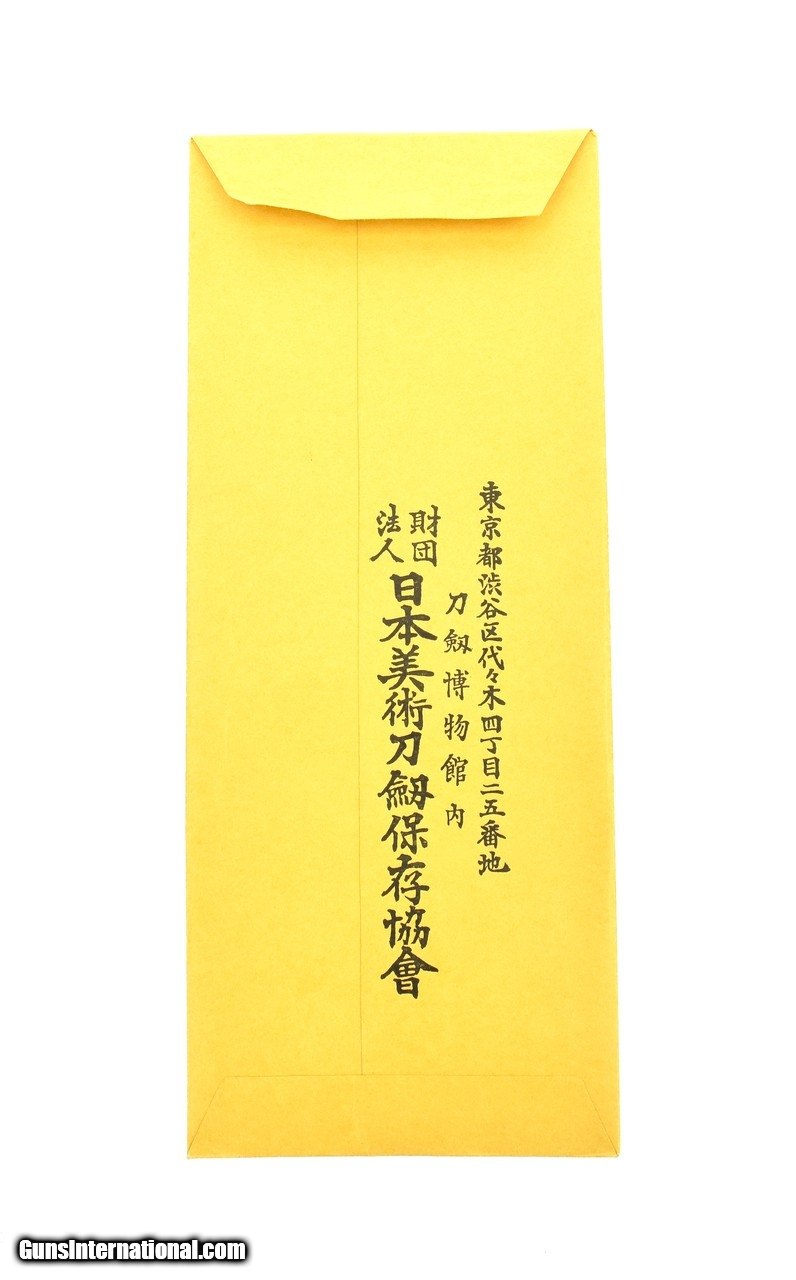 東京都渋谷区代々木四丁目二五番地
刀劔博物館内
財団法人
日本美術刀劔保存協會
GunsInternational.com